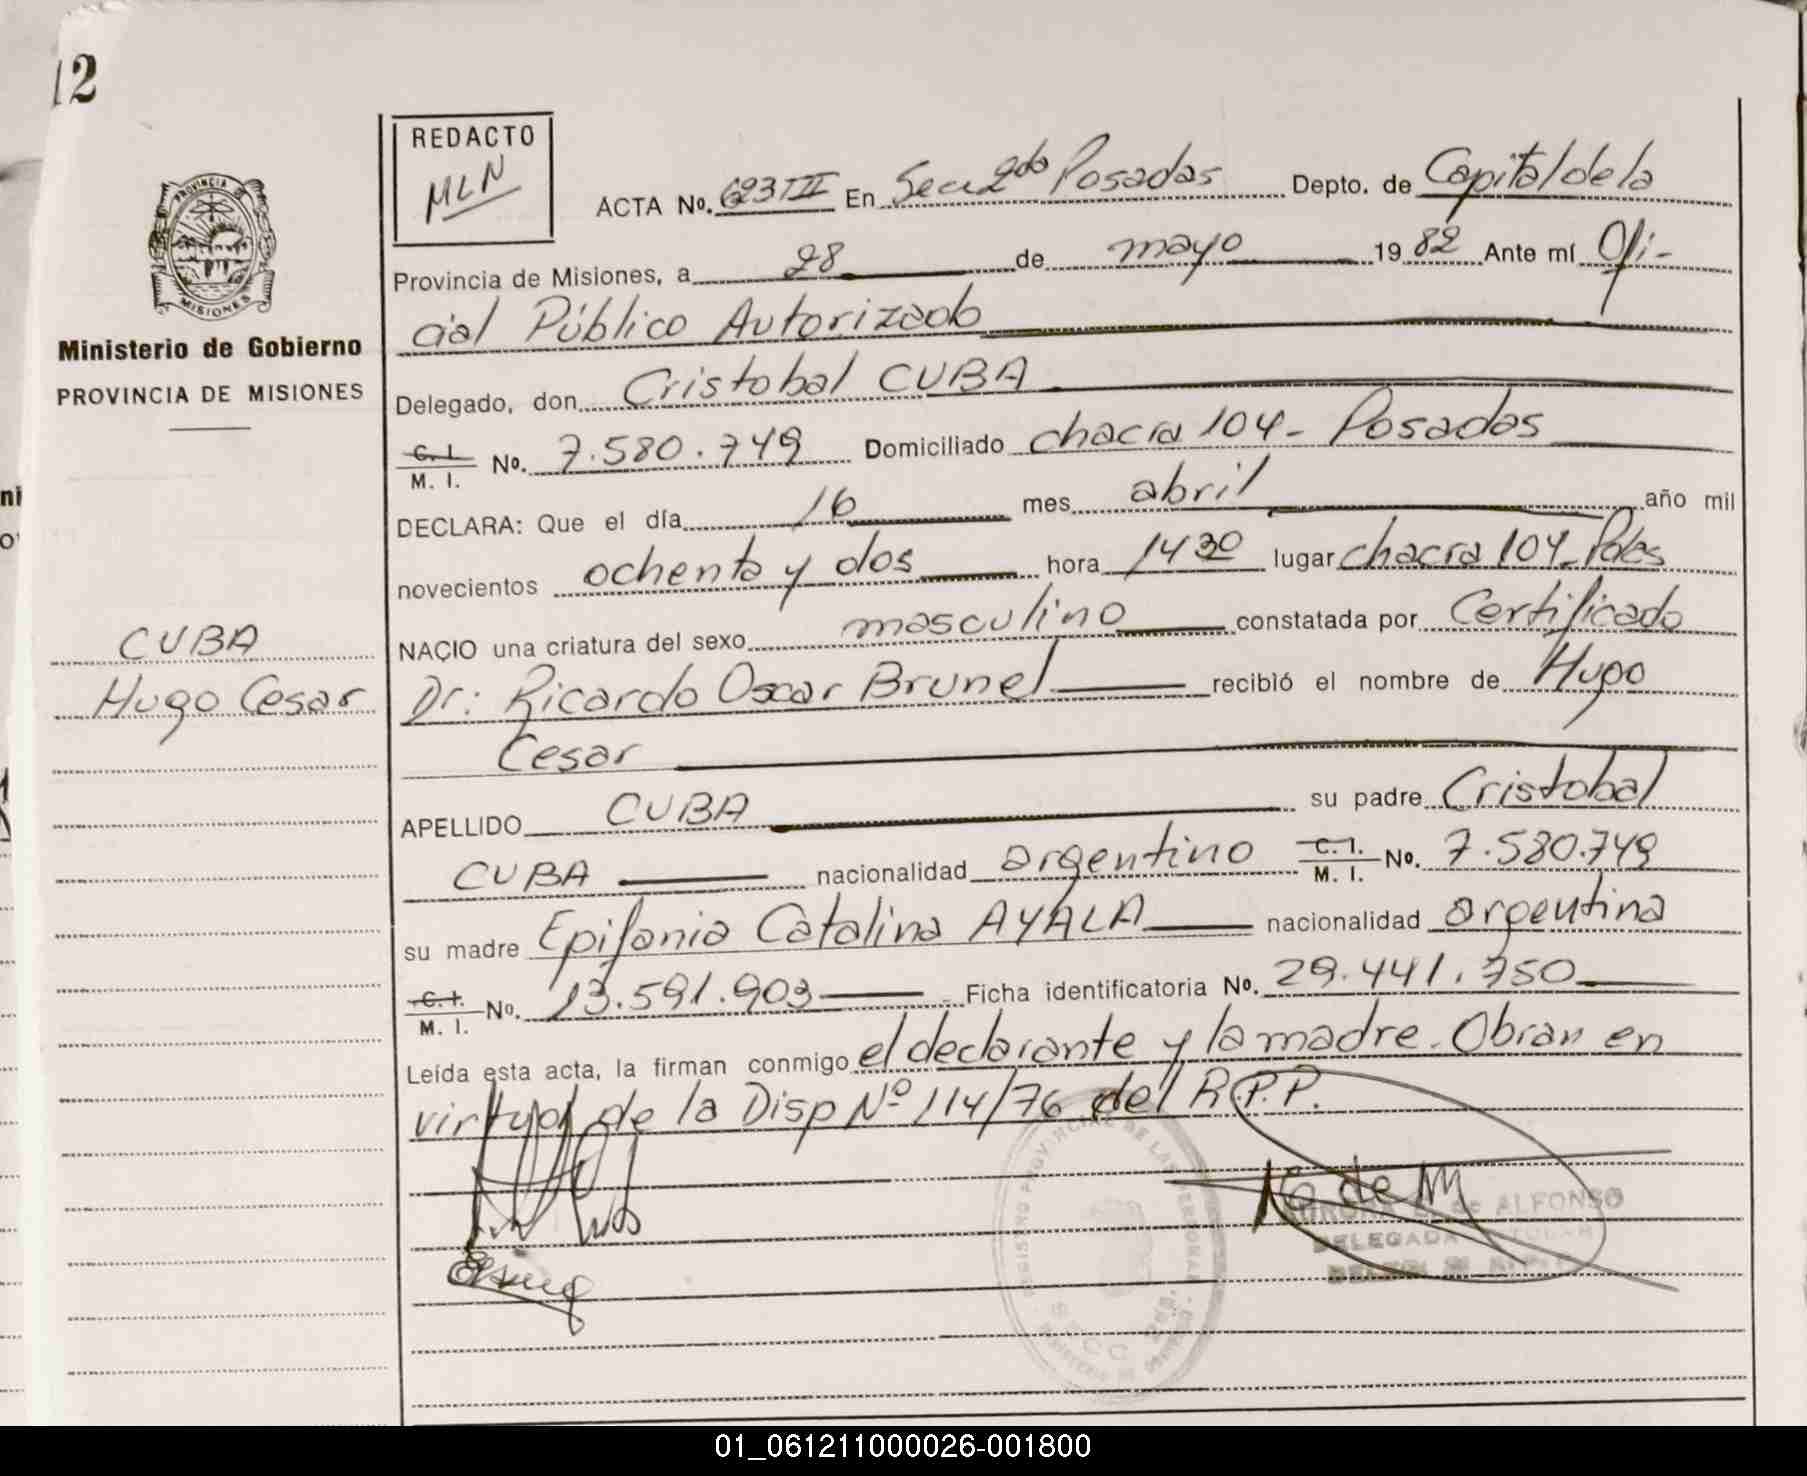 12
REDACTO
MLN
PROVINCIA DE
MISIONES
Ministerio de Gobierno
PROVINCIA DE MISIONES
CUBA
Hugo Cesar
ACTA No. 623 III En Secc 2do Posadas Depto. de Capital de la
Provincia de Misiones, a 28 de mayo 1982 Ante mí Ofi-
cial Público Autorizado
Delegado, don Cristobal CUBA
C. I.
M. I. No. 7.580.749 Domiciliado chacra 104 - Posadas
DECLARA: Que el día 16 mes abril año mil
novecientos ochenta y dos hora 14 30 lugar chacra 104 - Pdas
NACIO una criatura del sexo masculino constatada por Certificado
Dr: Ricardo Oscar Brunel recibió el nombre de Hugo
Cesar
APELLIDO CUBA su padre Cristobal
CUBA nacionalidad argentino C. I. M. I. No. 7.580.749
su madre Epifania Catalina AYALA nacionalidad argentina
C. I.
M. I. No. 13.591.903 Ficha identificatoria No. 29.441.750
Leída esta acta, la firman conmigo el declarante y la madre. Obran en
virtud de la Disp Nº 114/76 del R.P.P.
REGISTRO PROVINCIAL DE LAS PERSONAS
SECC
de ALFONSO
DELEGADA TITULAR
01_061211000026-001800